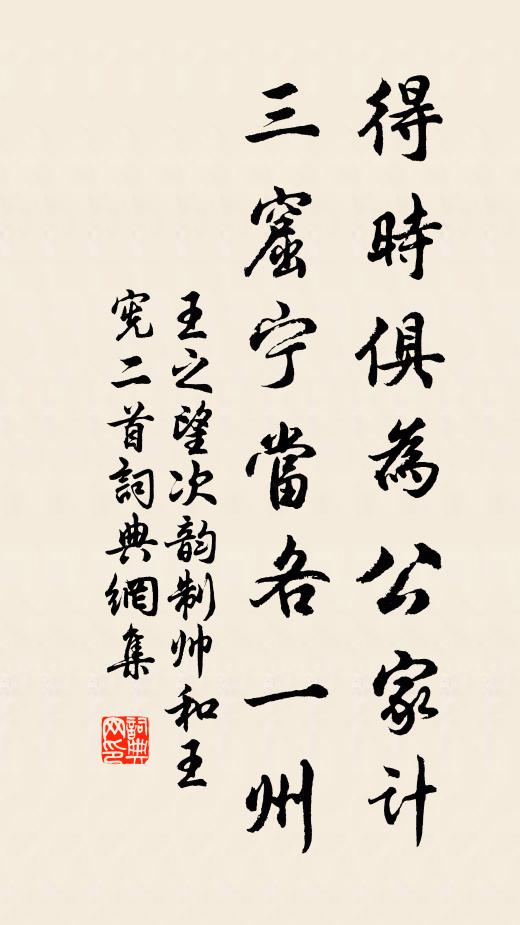 得時俱為公家計
三窟宁當各一州
王之望次韵制帅和王
宪二首詞典網集
詞典网印